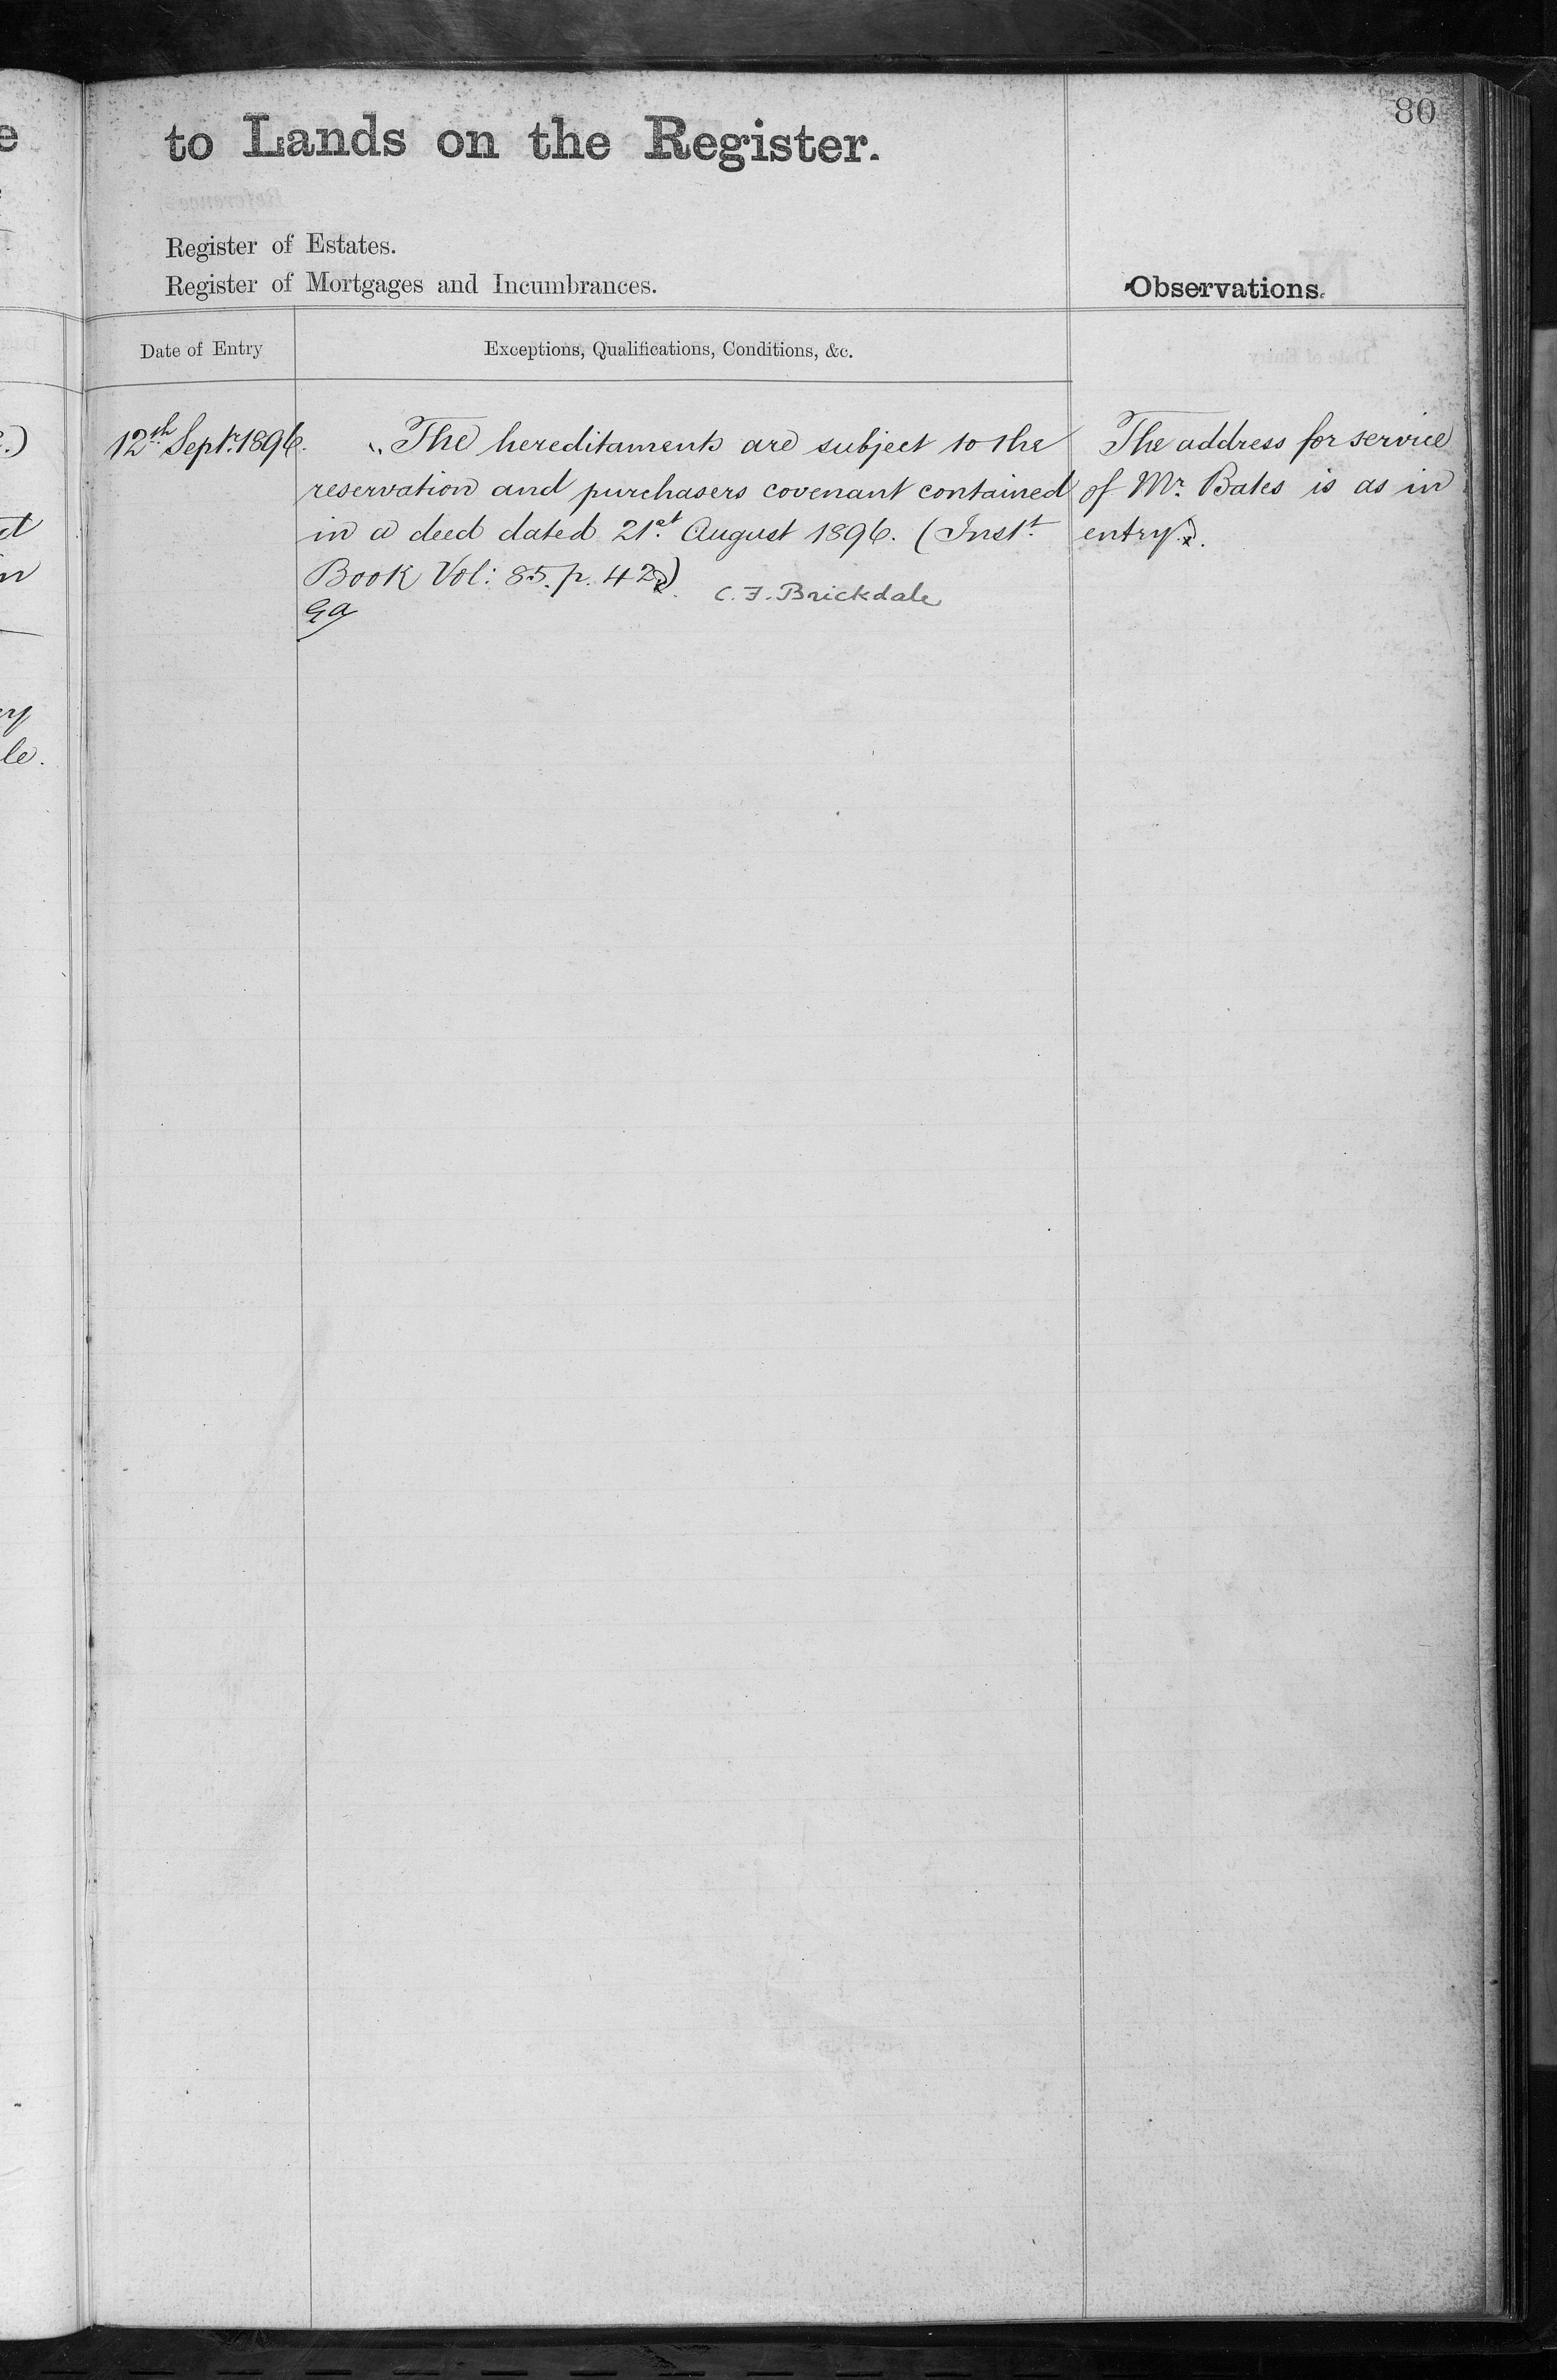 80
to Lands on the Register.
Register of Estates.
Register of Mortgages and Incumbrances.
Observations.
Date of Entry
Exceptions, Qualifications, Conditions, &c.
12th Septr. 1896.
The hereditaments are subject to the
reservation and purchasers covenant contained
in a deed dated 21st August 1896. (Instt
Book Vol: 85. p. 42)
C. F. Brickdale
The address for service
of Mr. Bates is as in
entry.